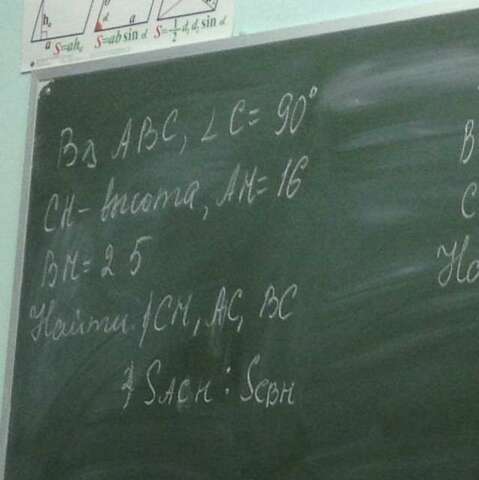 hₐ
a
a
d
S=ahₐ
S=ab sin d
S=1/2 d₁d₂ sin d
В △ ABC, ∠C = 90°
CH - высота, AH = 16
BH = 25
Найти: 1) CH, AC, BC
2) S_ACH : S_CBH
В
С
На